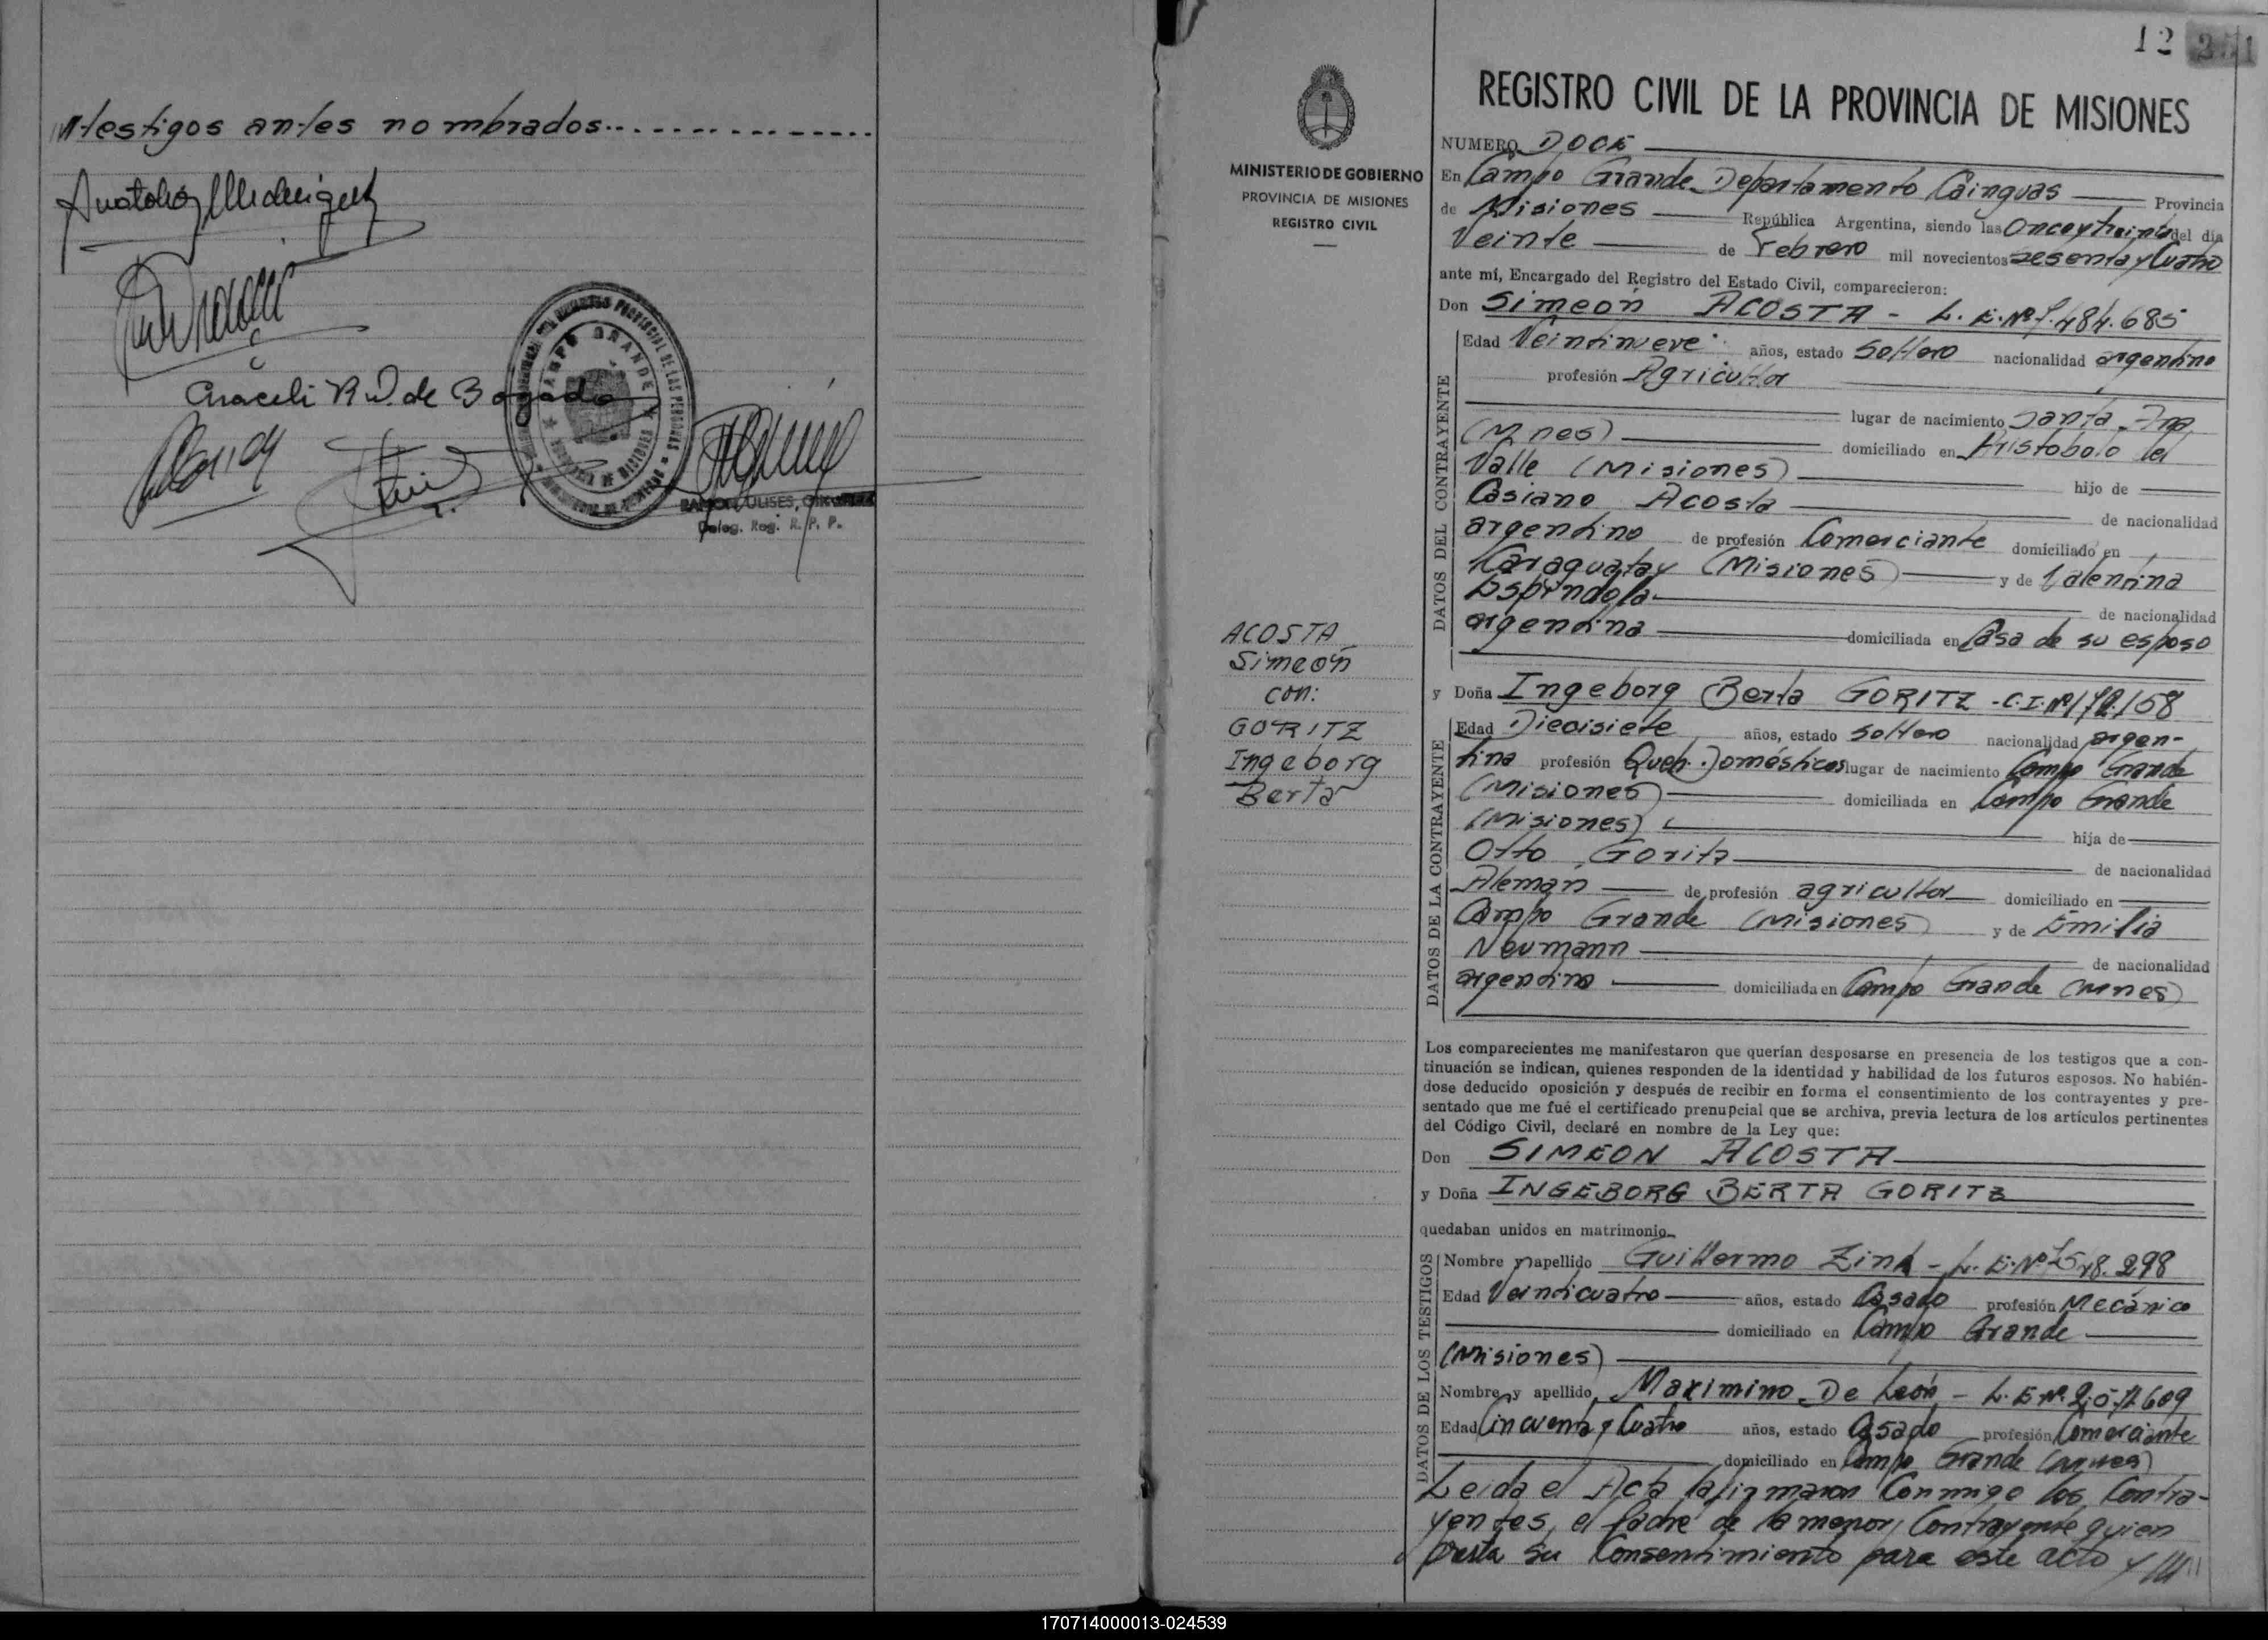 testigos antes nombrados...............
Araceli R V. de Bogado
CAMPO GRANDE
RAMON ULISES
Deleg. Reg. R. P. P.
12
REGISTRO CIVIL DE LA PROVINCIA DE MISIONES
MINISTERIO DE GOBIERNO
PROVINCIA DE MISIONES
REGISTRO CIVIL
ACOSTA
Simeón
con:
GORITZ
Ingeborg
Berta
NUMERO DOCE
En Campo Grande Departamento Cainguas Provincia
de Misiones República Argentina, siendo las Once y treinta del día
Veinte de Febrero mil novecientos sesenta y Cuatro
ante mí, Encargado del Registro del Estado Civil, comparecieron:
Don Simeón ACOSTA - L. E. Nº 7.484.685
DATOS DEL CONTRAYENTE
Edad Veintinueve años, estado Soltero nacionalidad argentino
profesión Agricultor
lugar de nacimiento Santa Ana
(Mnes) domiciliado en Aristobolo del
Valle (Misiones) hijo de
Casiano Acosta de nacionalidad
argentino de profesión Comerciante domiciliado en
Caraguatay (Misiones) y de Valentina
Espíndola de nacionalidad
argentina domiciliada en Casa de su esposo
y Doña Ingeborg Berta GORITZ - C. I. Nº 172.158
DATOS DE LA CONTRAYENTE
Edad Diecisiete años, estado Soltero nacionalidad argen-
tina profesión Queh. Domésticos lugar de nacimiento Campo Grande
(Misiones) domiciliada en Campo Grande
(Misiones) hija de
Otto Goritz de nacionalidad
Alemán de profesión agricultor domiciliado en
Campo Grande (Misiones) y de Emilia
Neumann de nacionalidad
argentina domiciliada en Campo Grande (Mnes)
Los comparecientes me manifestaron que querían desposarse en presencia de los testigos que a con-
tinuación se indican, quienes responden de la identidad y habilidad de los futuros esposos. No habién-
dose deducido oposición y después de recibir en forma el consentimiento de los contrayentes y pre-
sentado que me fué el certificado prenupcial que se archiva, previa lectura de los artículos pertinentes
del Código Civil, declaré en nombre de la Ley que:
Don SIMEON ACOSTA
y Doña INGEBORG BERTA GORITZ
quedaban unidos en matrimonio.
DATOS DE LOS TESTIGOS
Nombre y apellido Guillermo Zink - L. E. Nº 298
Edad Veinticuatro años, estado Casado profesión Mecánico
domiciliado en Campo Grande
(Misiones)
Nombre y apellido Maximino De León - L. E. Nº 609
Edad Cincuenta y Cuatro años, estado Casado profesión Comerciante
domiciliado en Campo Grande (Mnes)
Leida el Acta la firmaron Conmigo los Contra-
yentes, el Padre de la menor Contrayente quien
presta su Consentimiento para este acto y ////
170714000013-024539